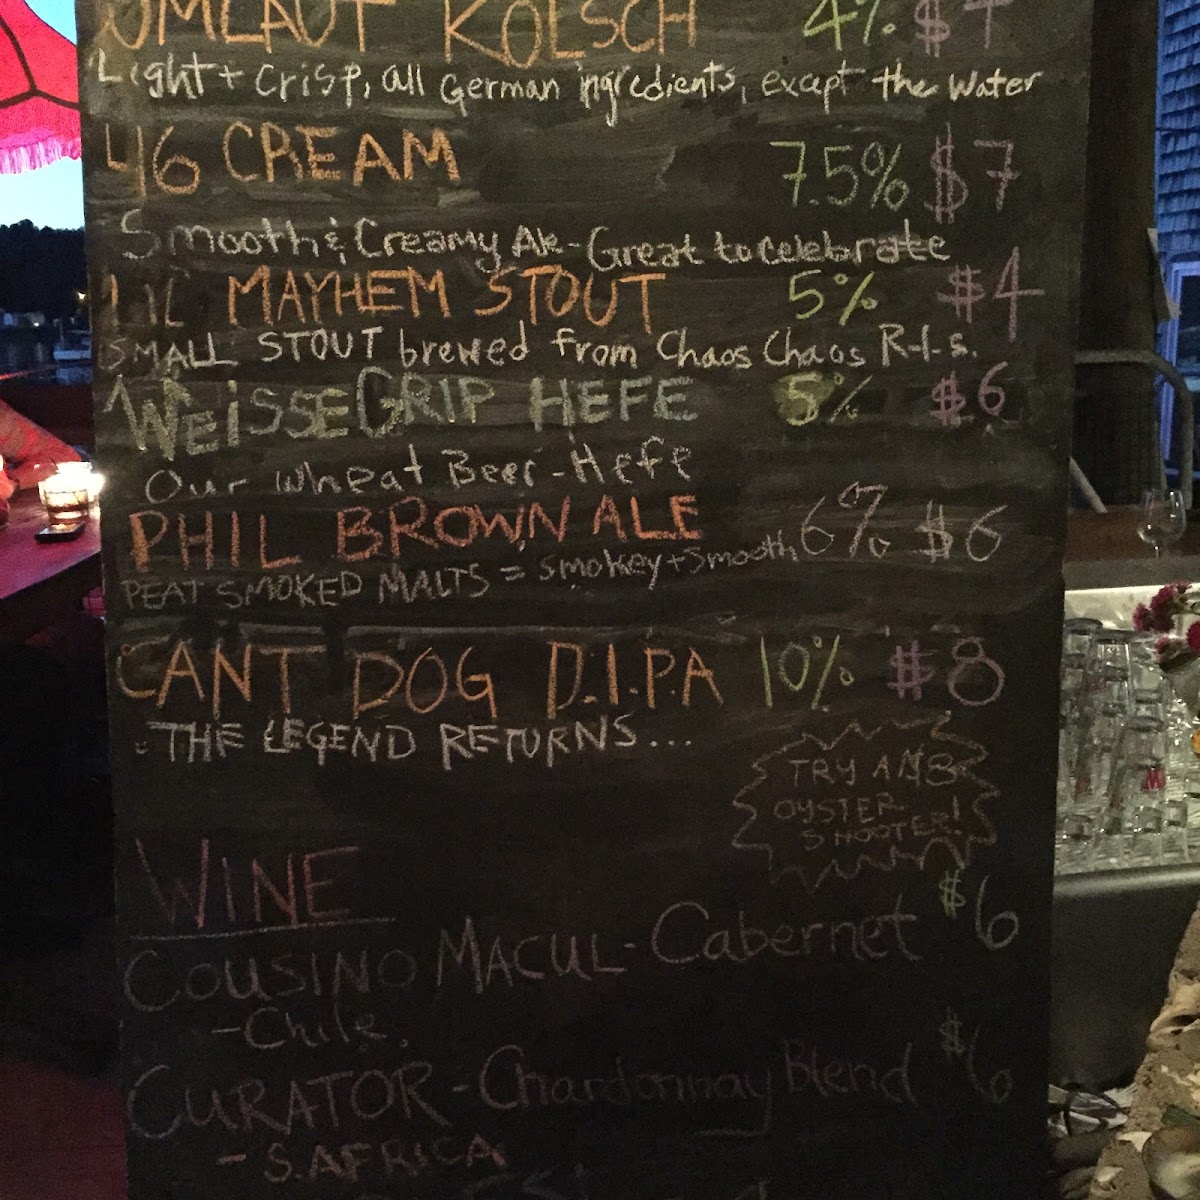 UMLAUT KOLSCH 4% $4
Light + Crisp, all German ingredients, except the Water
46 CREAM 7.5% $7
Smooth & Creamy Ale - Great to celebrate
LIL MAYHEM STOUT 5% $4
SMALL STOUT brewed from Chaos Chaos R.I.S.
WEISSEGRIP HEFE 5% $6
Our Wheat Beer - Hefe
PHIL BROWN ALE 6% $6
PEAT SMOKED MALTS = smokey + smooth
CANT DOG D.I.P.A 10% $8
THE LEGEND RETURNS...
TRY AN
OYSTER
SHOOTER!
WINE
COUSINO MACUL - Cabernet $6
- Chile.
CURATOR - Chardonnay Blend $6
- S. AFRICA